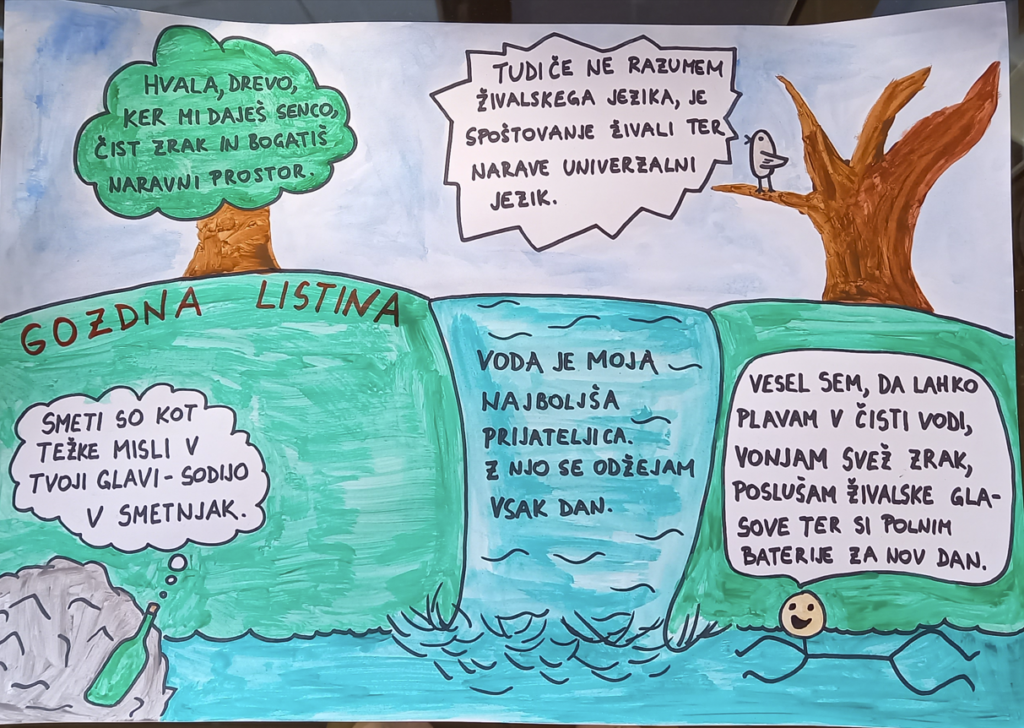 HVALA, DREVO,
KER MI DAJEŠ SENCO,
ČIST ZRAK IN BOGATIŠ
NARAVNI PROSTOR.
TUDI ČE NE RAZUMEM
ŽIVALSKEGA JEZIKA, JE
SPOŠTOVANJE ŽIVALI TER
NARAVE UNIVERZALNI
JEZIK.
GOZDNA LISTINA
VODA JE MOJA
NAJBOLJŠA
PRIJATELJICA.
Z NJO SE ODŽEJAM
VSAK DAN.
SMETI SO KOT
TEŽKE MISLI V
TVOJI GLAVI - SODIJO
V SMETNJAK.
VESEL SEM, DA LAHKO
PLAVAM V ČISTI VODI,
VONJAM SVEŽ ZRAK,
POSLUŠAM ŽIVALSKE GLA-
SOVE TER SI POLNIM
BATERIJE ZA NOV DAN.